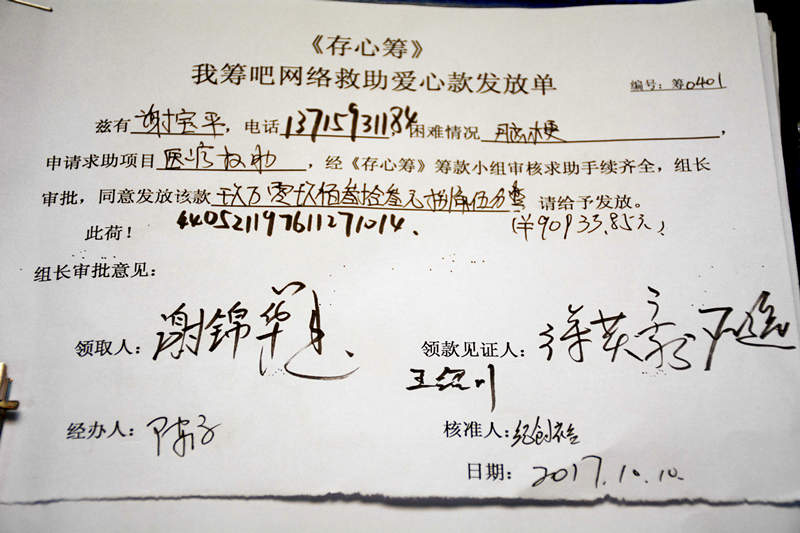 《存心筹》
我筹吧网络救助爱心款发放单
编号：筹0401
兹有 谢宝平，电话 13715931184 困难情况 脑梗，
申请求助项目 医疗救助，经《存心筹》筹款小组审核求助手续齐全，组长
审批，同意发放该款 玖万零玖佰叁拾叁元捌角伍分整 请给予发放。
此荷！ 440521197611271014. (¥90933.85元)
组长审批意见：
领取人：谢锦华 领款见证人：
经办人： 核准人：
日期：2017.10.10.